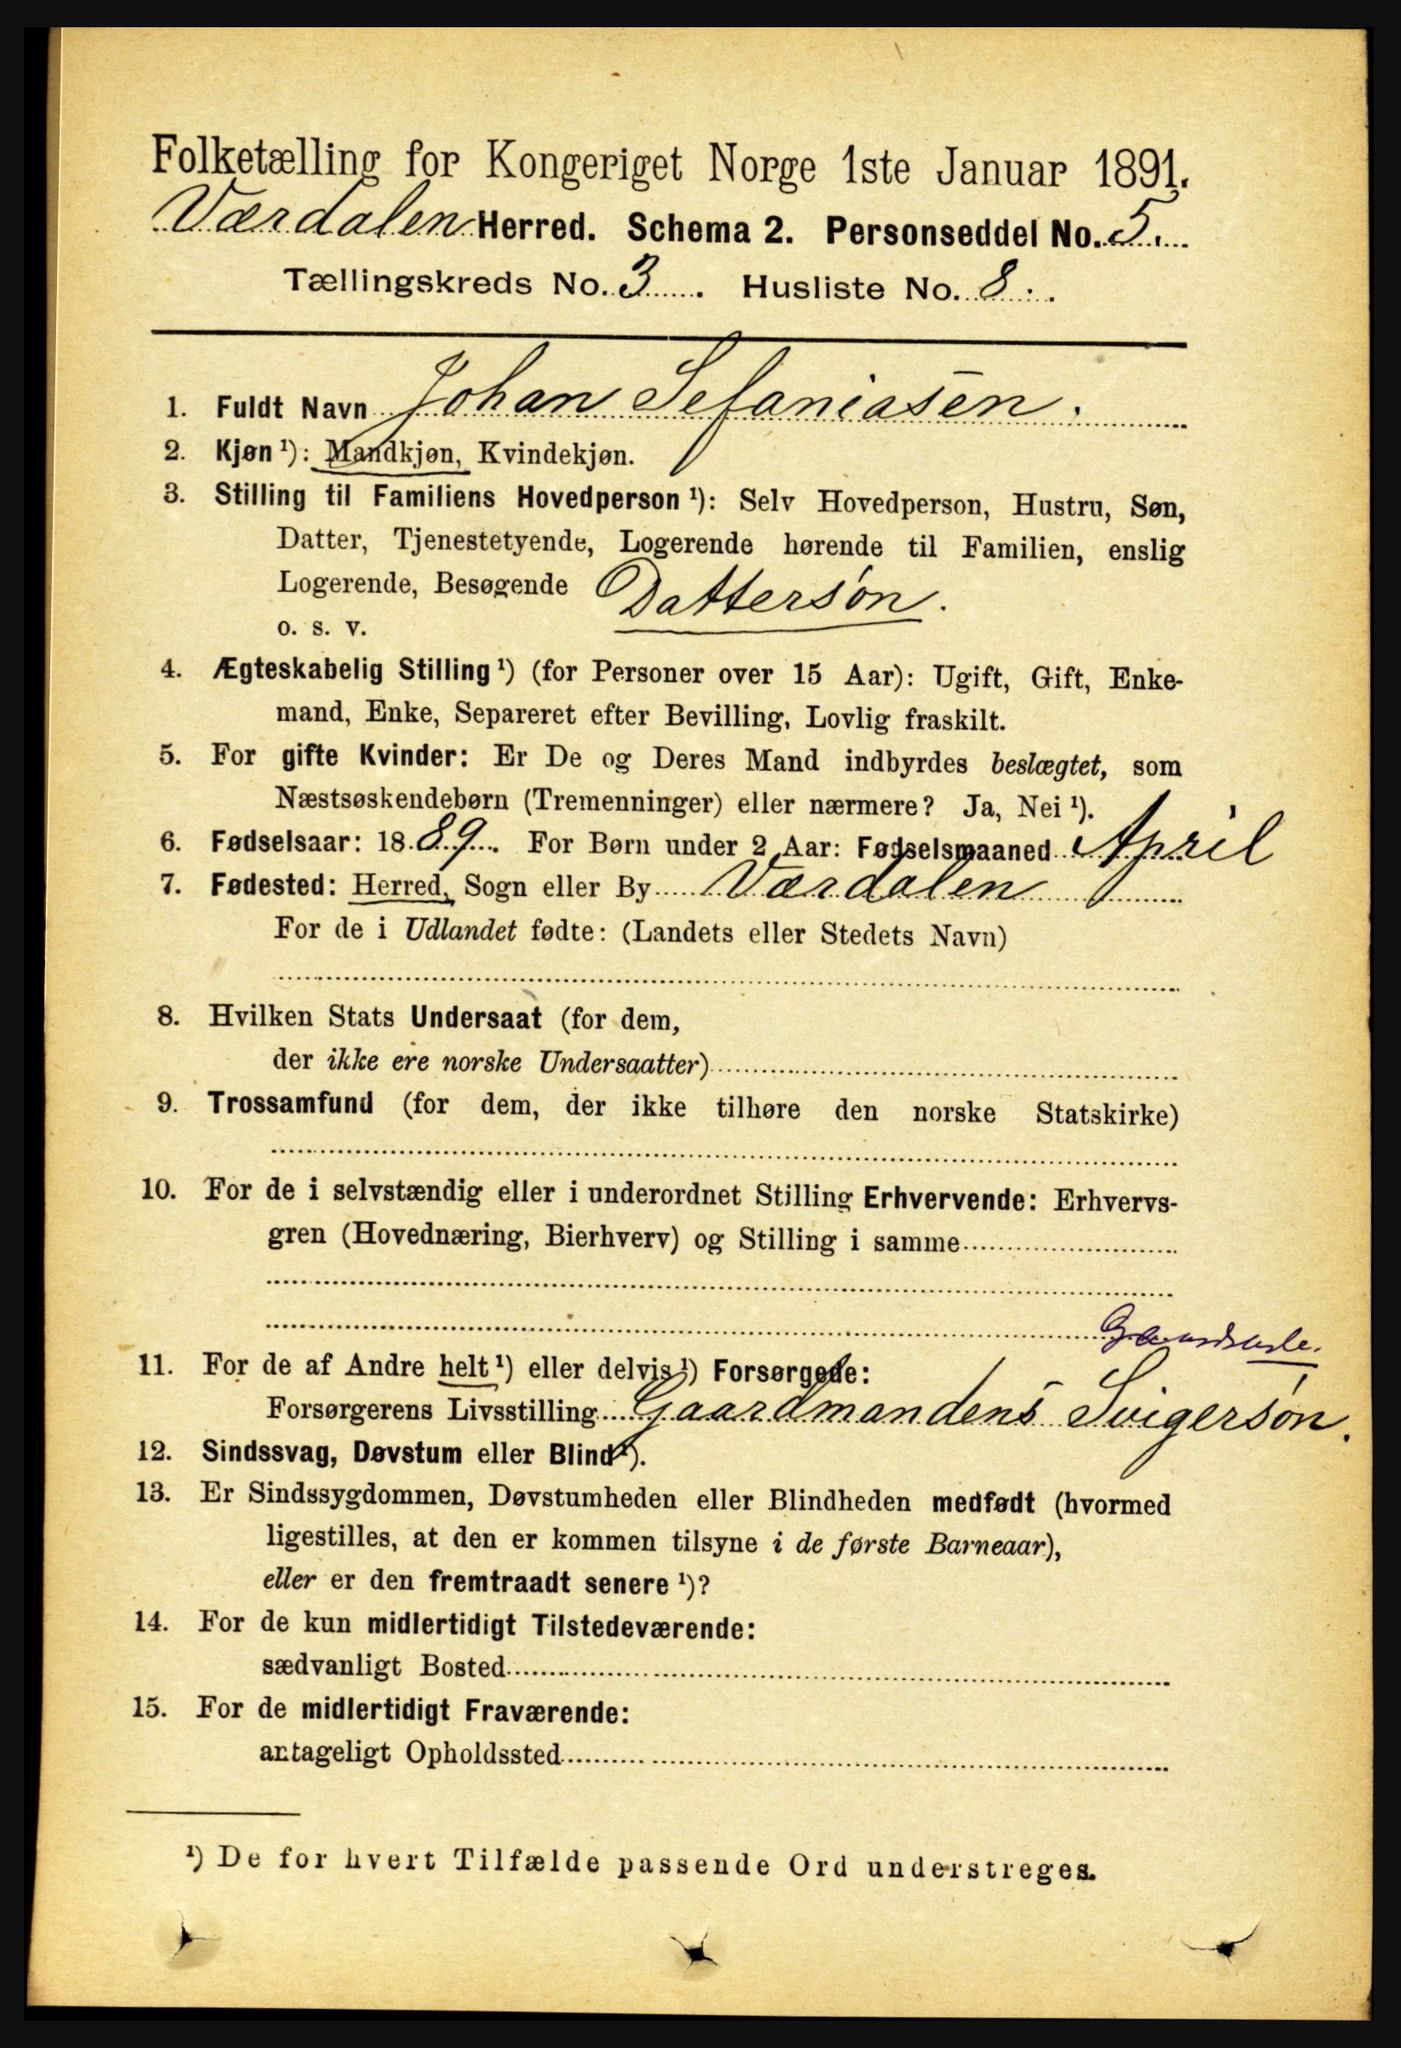 Folketælling for Kongeriget Norge 1ste Januar 1891.
Værdalen Herred. Schema 2. Personseddel No. 5.
Tællingskreds No. 3. Husliste No. 8.
1. Fuldt Navn Johan Sefaniasen.
2. Kjøn ¹): Mandkjøn, Kvindekjøn.
3. Stilling til Familiens Hovedperson ¹): Selv Hovedperson, Hustru, Søn,
Datter, Tjenestetyende, Logerende hørende til Familien, enslig
Logerende, Besøgende Dattersøn.
o. s. v.
4. Ægteskabelig Stilling ¹) (for Personer over 15 Aar): Ugift, Gift, Enke-
mand, Enke, Separeret efter Bevilling, Lovlig fraskilt.
5. For gifte Kvinder: Er De og Deres Mand indbyrdes beslægtet, som
Næstsøskendebørn (Tremenninger) eller nærmere? Ja, Nei ¹).
6. Fødselsaar: 1889. For Børn under 2 Aar: Fødselsmaaned April
7. Fødested: Herred, Sogn eller By Værdalen
For de i Udlandet fødte: (Landets eller Stedets Navn)
8. Hvilken Stats Undersaat (for dem,
der ikke ere norske Undersaatter)
9. Trossamfund (for dem, der ikke tilhøre den norske Statskirke)
10. For de i selvstændig eller i underordnet Stilling Erhvervende: Erhvervs-
gren (Hovednæring, Bierhverv) og Stilling i samme
11. For de af Andre helt ¹) eller delvis ¹) Forsørgede:
Forsørgerens Livsstilling Gaardmandens Svigersøn.
12. Sindssvag, Døvstum eller Blind ¹).
13. Er Sindssygdommen, Døvstumheden eller Blindheden medfødt (hvormed
ligestilles, at den er kommen tilsyne i de første Barneaar),
eller er den fremtraadt senere ¹)?
14. For de kun midlertidigt Tilstedeværende:
sædvanligt Bosted
15. For de midlertidigt Fraværende:
antageligt Opholdssted
¹) De for hvert Tilfælde passende Ord understreges.